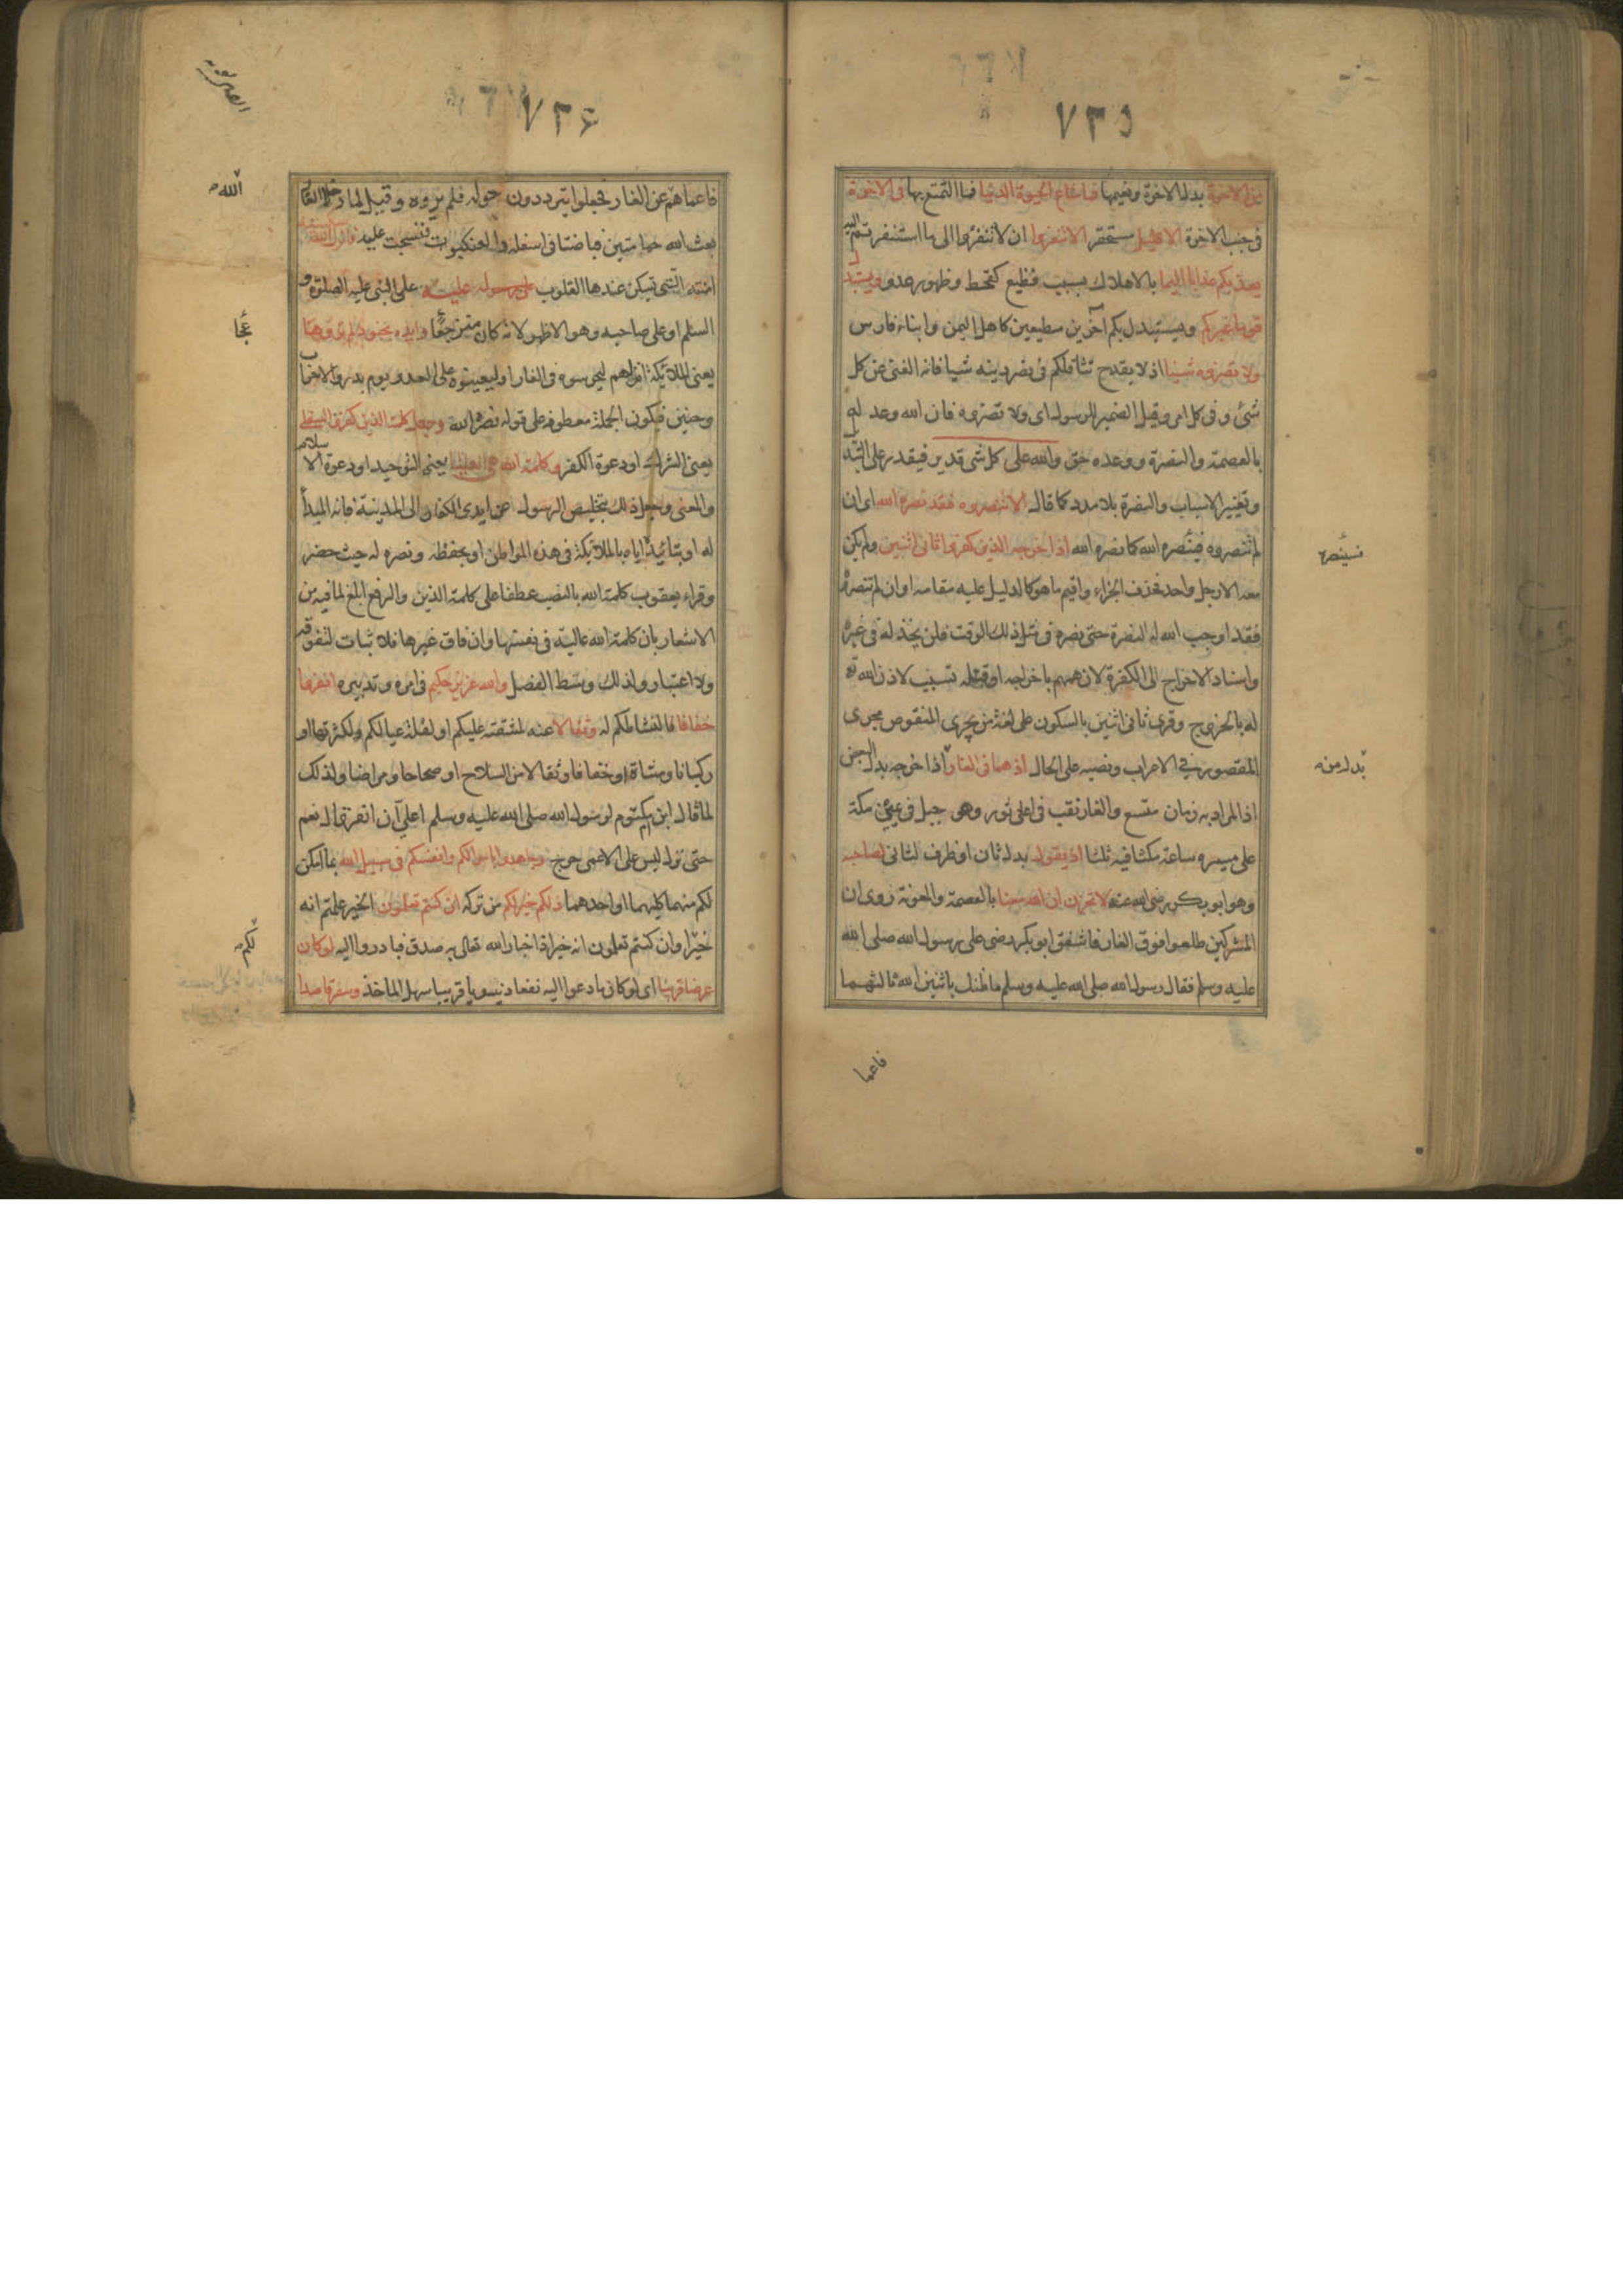 ٧٣٥
من الاخرة بدل الاخرة ونعيمها فما متاع الحيوة الدنيا فما التمتع بها فى الاخرة
فى جنب الاخرة الا قليل مستحقر الا تنفروا ان لا تنفروا الى ما استنفرتم اليه
يعذبكم عذابا اليما بالاهلاك بسبب فظيع كقحط وظهور عدو ويستبدل
قوما غيركم ويستبدل بكم آخرين مطيعين كاهل اليمن وابناء فارس
ولا تضروه شيئا اذ لا يقدح تثاقلكم فى نصر دينه شيا فانه الغنى عن كل
شئ وفى كل امر وقيل الضمير للرسول اى ولا تضروه فان الله وعد له
بالعصمة والنصرة ووعده حق والله على كل شى قدير فيقدر على التبديل
وتغيير الاسباب والنصرة بلا مدد كما قال الا تنصروه فقد نصره الله اى ان
لم تنصروه فينصره الله كما نصره الله اذ اخرجه الذين كفروا ثانى اثنين ولم يكن
معه الا رجل واحد فحذف الجزاء واقيم ما هو كالدليل عليه مقامه او ان لم تنصروه
فقد اوجب الله له النصرة حتى نصره فى مثل ذلك الوقت فلن يخذله فى غيره
واسناد الاخراج الى الكفرة لان همهم باخراجه او قتله تسبب لاذن الله تع
له بالخروج وقرى ثانى اثنين بالسكون على لغة من يجرى المنقوص مجرى
المقصور فى الاعراب ونصبه على الحال اذ هما فى الغار اذا خرجه بدل البعض
اذ المراد به زمان متسع والغار نقب فى اعلى ثور وهو جبل فى يمين مكة
على مسيره ساعة مكثا فيه ثلثا اذ يقول بدل ثان او ظرف لثانى لصاحبه
وهو ابو بكر رضى الله عنه لا تحزن ان الله معنا بالعصمة والمعونة روى ان
المشركين طلعوا فوق الغار فاشفق ابو بكر رضى على رسول الله صلى الله
عليه وسلم فقال رسول الله صلى الله عليه وسلم ما ظنك باثنين الله ثالثهما
فاعما
بدل من
٧٣٦
فاعماهم عن الغار فجعلوا يترددون حوله فلم يروه وقيل لما دخلا الغار
بعث الله حمامتين فباضتا فى اسفله والعنكبوت فنسجت عليه فانزل الله سكينته
امنته التى تسكن عندها القلوب على رسوله عليه على النبى عليه الصلوة و
السلم او على صاحبه وهو الاظهر لانه كان منزعجا وايده بجنود لم تروها
يعنى الملائكة انزلهم ليحرسوه فى الغار او ليعينوه على العدو يوم بدر والاحزاب
وحنين فيكون الجملة معطوفة على قوله نصره الله وجعل كلمة الذين كفروا السفلى
يعنى الشرك او دعوة الكفر وكلمة الله هى العليا يعنى التوحيد او دعوة الاسلام
والمعنى وجعل ذلك بتخليص الرسول عن ايدى الكفار الى المدينة فانه المبدأ
له او بتائيده اياه بالملائكة فى هذه المواطن او بحفظه ونصره له حيث حضر
وقراء يعقوب كلمة الله بالنصب عطفا على كلمة الذين والرفع ابلغ لما فيه من
الاشعار بان كلمة الله عالية فى نفسها وان فاق غيرها فلا ثبات لتفوقه
ولا اعتبار ولذلك وسط الفصل والله عزيز حكيم فى امره وتدبيره انفروا
خفافا لنشاطكم له وثقالا عنه لمشقته عليكم او لقلة عيالكم ولكثرتها او
ركبانا ومشاة او خفافا وثقالا من السلاح او صحاحا ومراضا ولذلك
لما قال ابن ام مكتوم لرسول الله صلى الله عليه وسلم اعلى آن انفر قال نعم
حتى نزل ليس على الاعمى حرج وجاهدوا باموالكم وانفسكم فى سبيل الله بما امكن
لكم منهما كليهما او احدهما ذلكم خير لكم من تركه ان كنتم تعلمون الخير علمتم انه
خير او ان كنتم تعلمون انه خير اذ اخبار الله تعالى به صدق فبادروا اليه لو كان
عرضا قريبا اى لو كان ما دعوا اليه نفعا دنيويا قريبا سهل الماخذ وسفرا قاصدا
الله
لكم